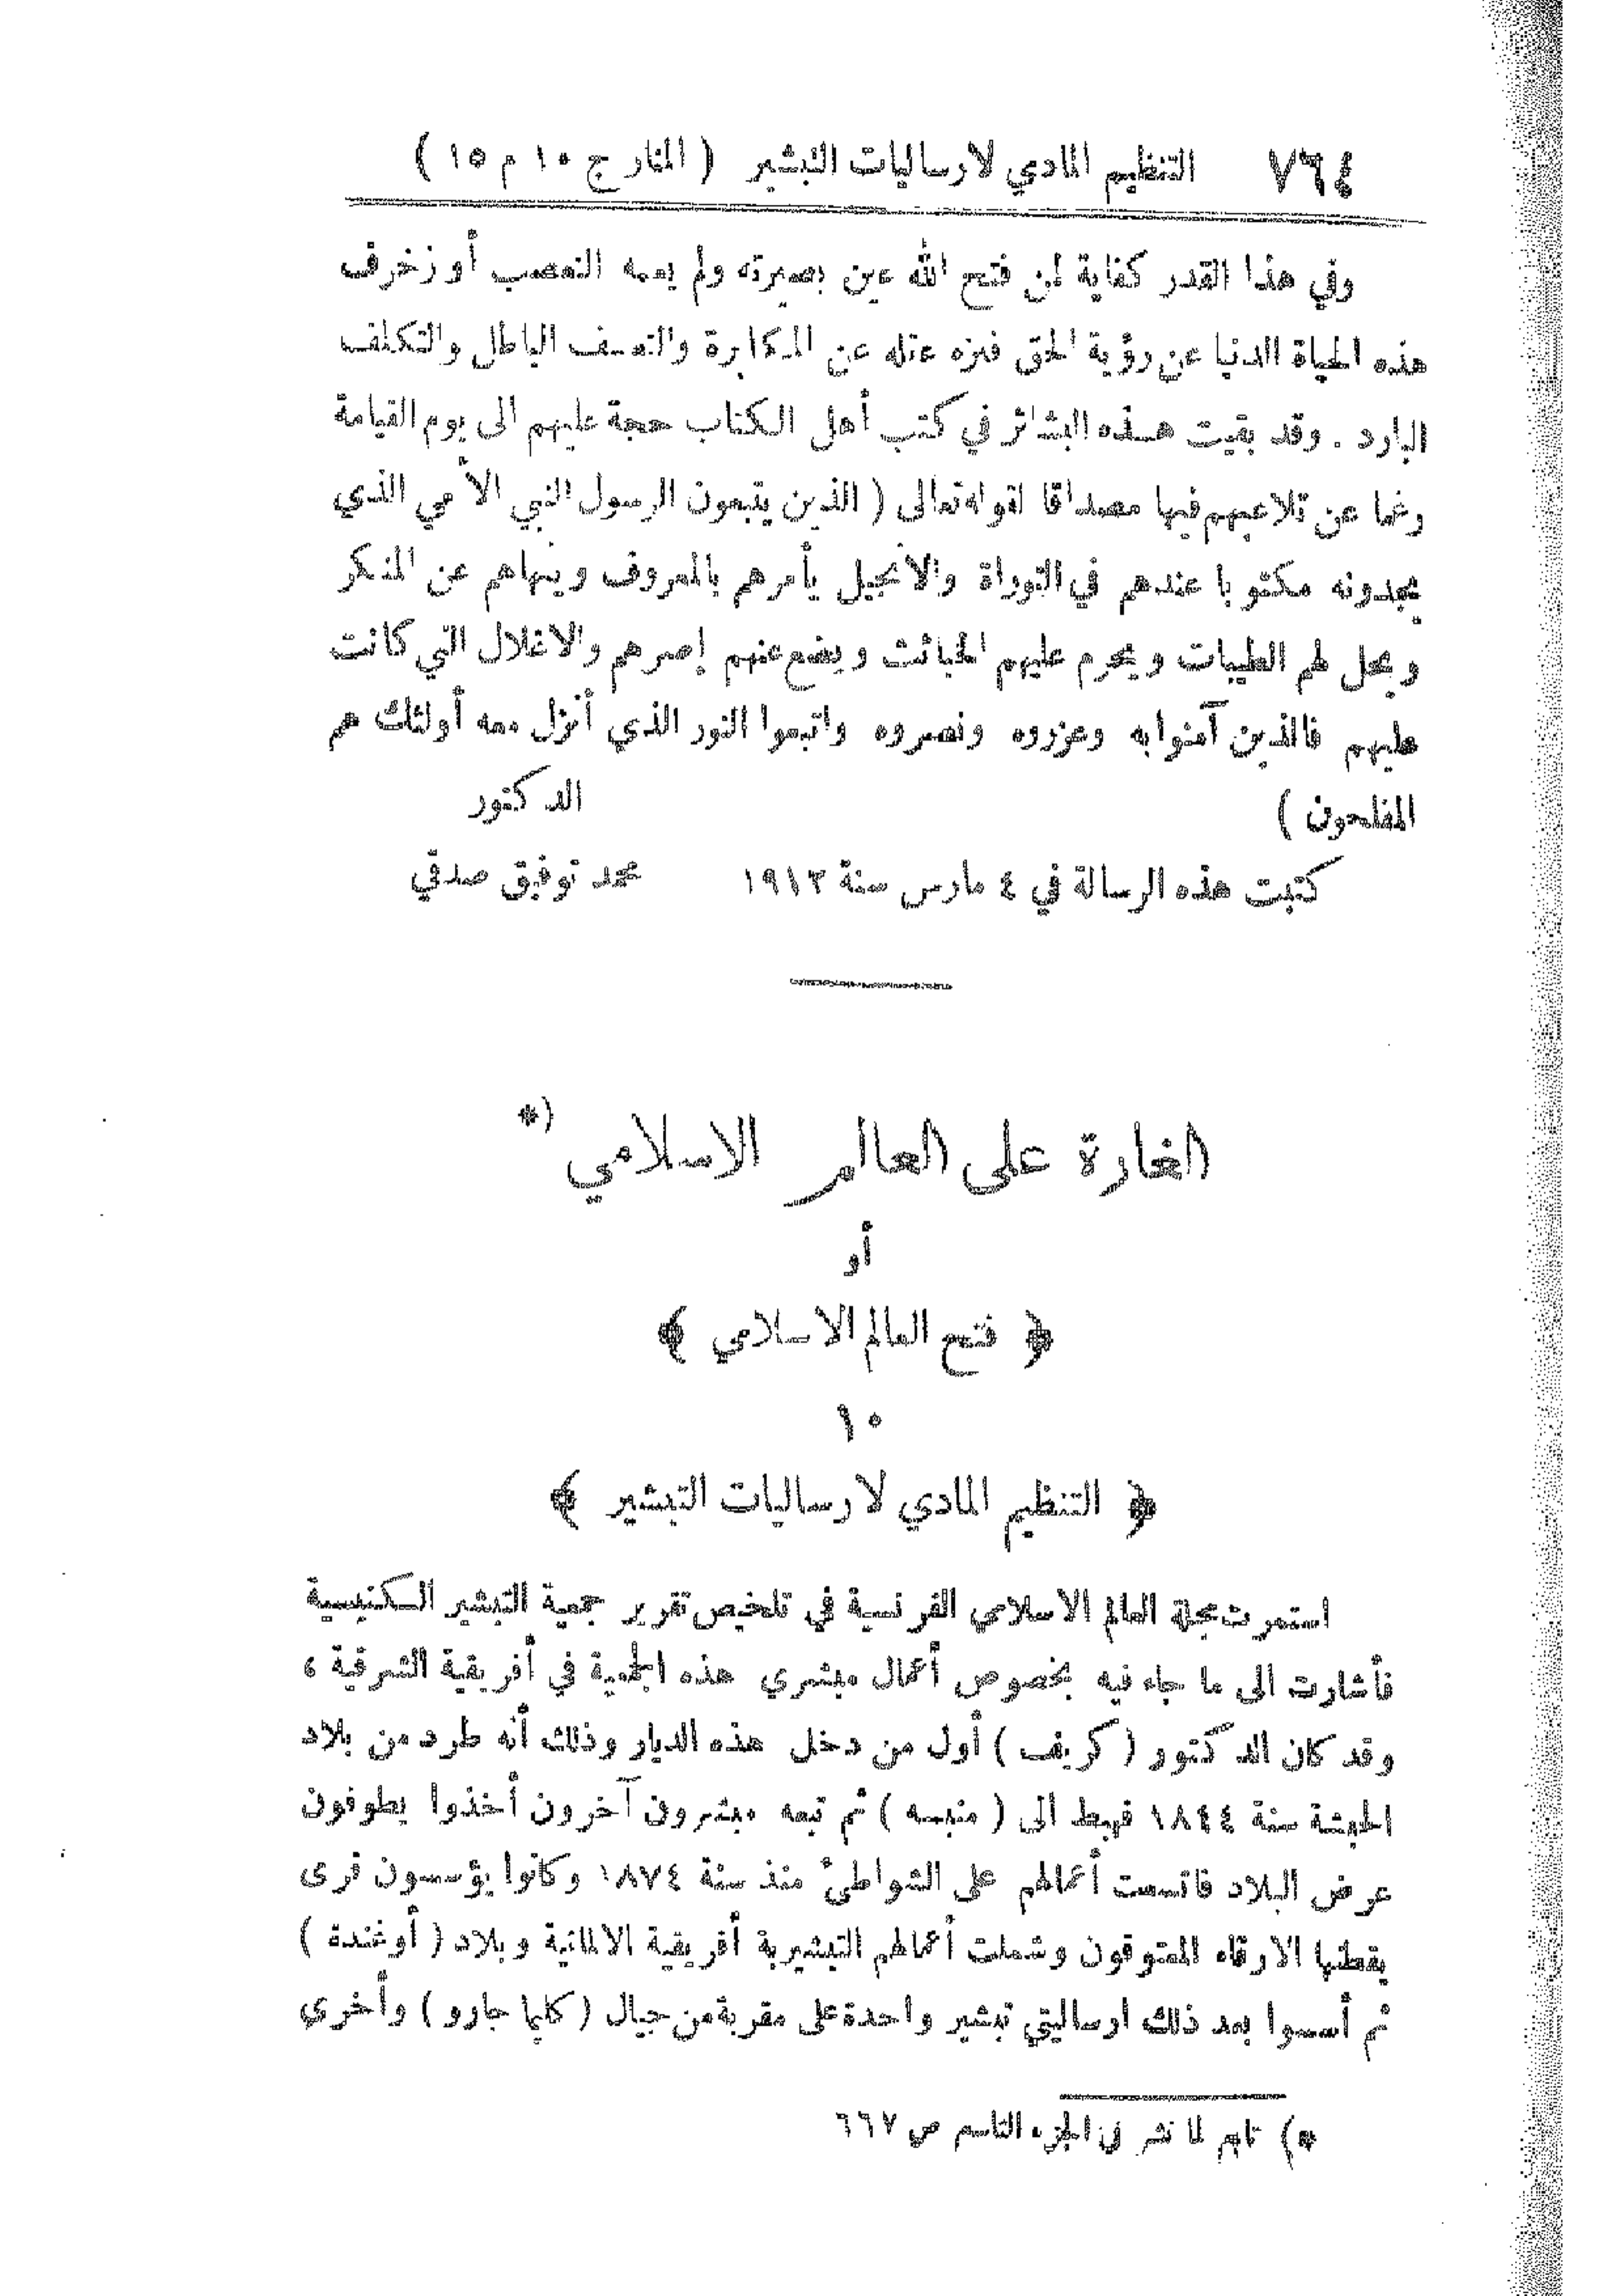 ٧٦٤ التنظيم المادي لارساليات التبشير ( المنار ج ١٠ م ١٥ )
وفي هذا القدر كفاية لمن فتح الله عين بصيرته ولم يعمه التعصب أو زخرف
هذه الحياة الدنيا عن رؤية الحق فنزه عقله عن المكابرة والتعسف الباطل والتكلف
البارد . وقد بقيت هذه البشائر في كتب أهل الكتاب حجة عليهم الى يوم القيامة
رغما عن تلاعبهم فيها مصداقا لقوله تعالى ( الذين يتبعون الرسول النبي الأمي الذي
يجدونه مكتوبا عندهم في التوراة والانجيل يأمرهم بالمعروف وينهاهم عن المنكر
ويحل لهم الطيبات ويحرم عليهم الخبائث ويضع عنهم إصرهم والاغلال التي كانت
عليهم فالذين آمنوا به وعزروه ونصروه واتبعوا النور الذي أنزل معه أولئك هم
المفلحون ) الدكتور
كتبت هذه الرسالة في ٤ مارس سنة ١٩١٢ محمد توفيق صدقي
الغارة على العالم الاسلامي *)
أو
﴿ فتح العالم الاسلامي ﴾
١٠
﴿ التنظيم المادي لارساليات التبشير ﴾
استمرت مجلة العالم الاسلامي الفرنسية في تلخيص تقرير جمعية التبشير الكنيسية
فأشارت الى ما جاء فيه بخصوص أعمال مبشري هذه الجمعية في أفريقية الشرقية ،
وقد كان الدكتور ( كريف ) أول من دخل هذه الديار وذلك أنه طرد من بلاد
الحبشة سنة ١٨٤٤ فهبط الى ( منبسه ) ثم تبعه مبشرون آخرون أخذوا يطوفون
عرض البلاد فاتسعت أعمالهم على الشواطئ منذ سنة ١٨٧٤ وكانوا يؤسسون قرى
يقطنها الارقاء المعتوقون وشملت أعمالهم التبشيرية أفريقية الالمانية وبلاد ( أوغندة )
ثم أسسوا بعد ذلك ارساليتي تبشير واحدة على مقربة من جبال ( كليما جارو ) وأخرى
*) تابع لما نشر في الجزء التاسع ص ٦٦٧